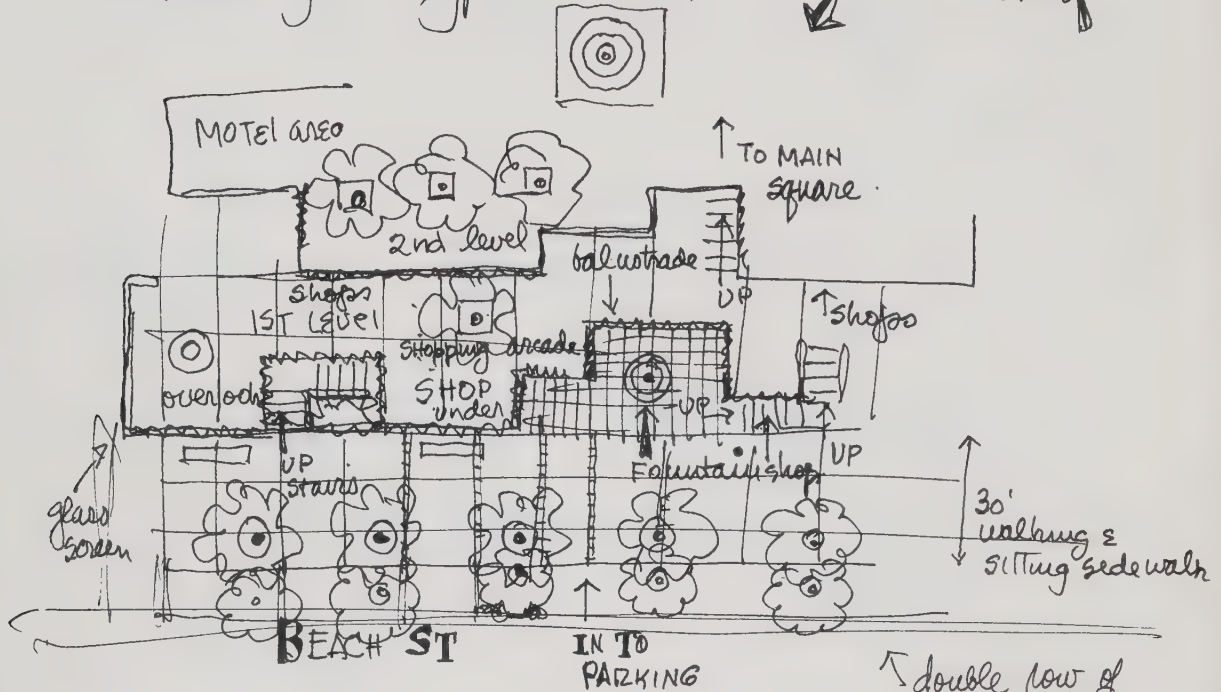 MOTEL area
TO MAIN
square.
2nd level
balustrade
UP
shops
shops
1ST LEVEL
shopping arcade
SHOP
under
UP
UP
UP
stairs
Fountain shop
glass
screen
30'
walking &
sitting sidewalk
BEACH ST
IN TO
PARKING
double row of